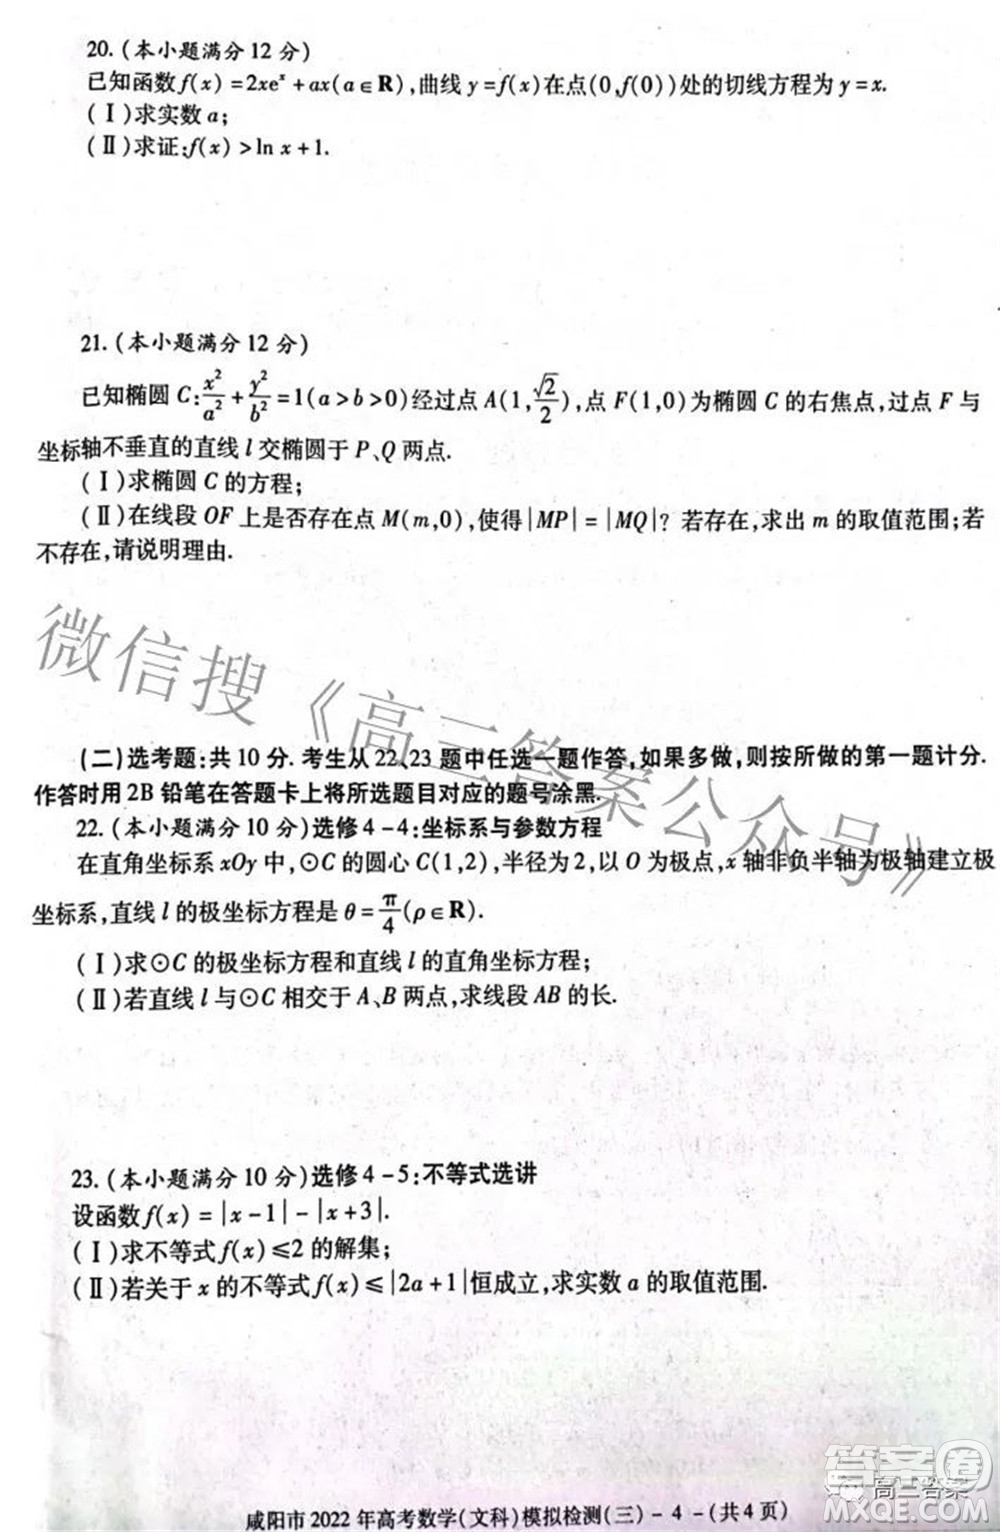 20.(本小题满分12分)
已知函数f(x)=2xeˣ+ax(a∈R),曲线y=f(x)在点(0,f(0))处的切线方程为y=x.
(Ⅰ)求实数a;
(Ⅱ)求证:f(x)>ln x+1.
21.(本小题满分12分)
已知椭圆C:x²/a²+y²/b²=1(a>b>0)经过点A(1,√2/2),点F(1,0)为椭圆C的右焦点,过点F与
坐标轴不垂直的直线l交椭圆于P、Q两点.
(Ⅰ)求椭圆C的方程;
(Ⅱ)在线段OF上是否存在点M(m,0),使得|MP|=|MQ|?若存在,求出m的取值范围;若
不存在,请说明理由.
微信搜《高三答案公众号》
(二)选考题:共10分.考生从22、23题中任选一题作答,如果多做,则按所做的第一题计分.
作答时用2B铅笔在答题卡上将所选题目对应的题号涂黑.
22.(本小题满分10分)选修4-4:坐标系与参数方程
在直角坐标系xOy中,⊙C的圆心C(1,2),半径为2,以O为极点,x轴非负半轴为极轴建立极
坐标系,直线l的极坐标方程是θ=π/4(ρ∈R).
(Ⅰ)求⊙C的极坐标方程和直线l的直角坐标方程;
(Ⅱ)若直线l与⊙C相交于A、B两点,求线段AB的长.
23.(本小题满分10分)选修4-5:不等式选讲
设函数f(x)=|x-1|-|x+3|.
(Ⅰ)求不等式f(x)≤2的解集;
(Ⅱ)若关于x的不等式f(x)≤|2a+1|恒成立,求实数a的取值范围.
答案圈
高三答案
MXQE.COM
咸阳市2022年高考数学(文科)模拟检测(三)-4-(共4页)